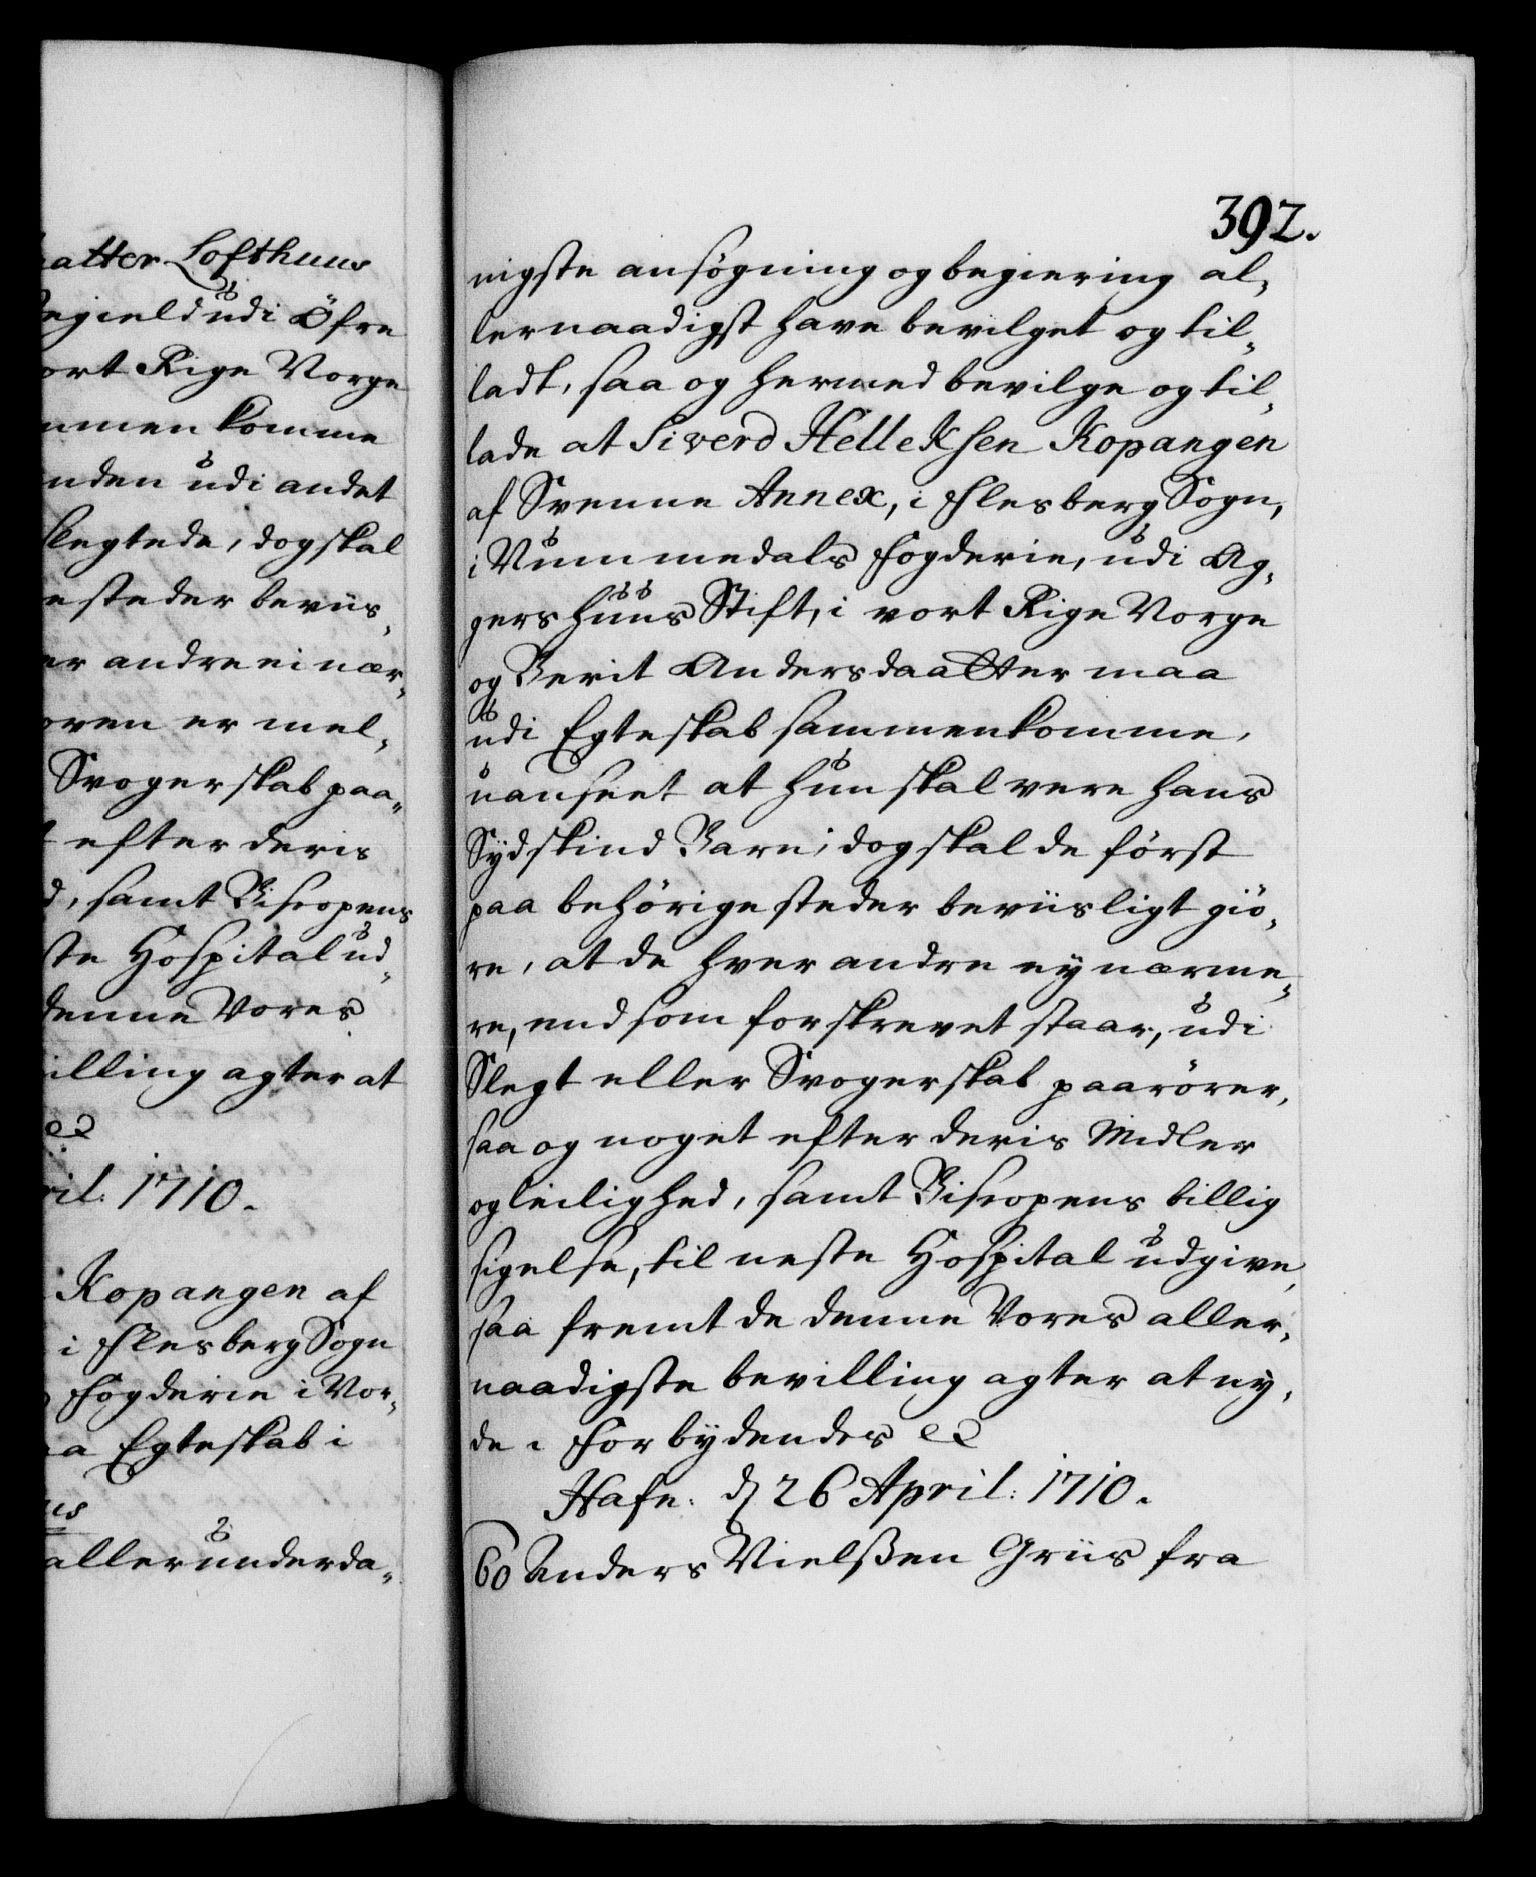 atter Lofthuus
egield udi Öfre
ort Rige Norge
mmen komme
nden udi andet
slegtede, dog skal
e steder beviis„
er andre ei nær„
oren er mel„
Svogerskab paa„
efter deris
d, samt Biscopens
ste Hospital ud„
denne Vores
illing agter at
ril: 1710.
Kopangen af
i Flesberg Sogn
Fogderie i Nor„
a Egteskab i
us
allerunderda„
392.
nigste ansøgning og begiering al„
lernaadigst have bevilget og til„
ladt, saa og hermed bevilge og til„
lade at Siverd Helleksen Kopangen
af Svenne Annex, i Flesberg Sogn,
i Nummedals Fogderie, udi Ag„
gershuus Stift, i vort Rige Norge
og Berit Andersdaatter maa
udi Egteskab sammenkomme,
uanseet at hun skal vere hans
Sydskind Barn; dog skal de först
paa behörige steder beviisligt giö„
re, at de hver andre ey nærme„
re, end som forskrevet staar, udi
Slegt eller Svogerskab paarörer,
saa og noget efter deris Midler
og leilighed, samt Biscopens billig
sigelse, til neste Hospital udgive,
saa fremt de denne Vores aller„
naadigste bevilling agter at ny„
de. Forbydendes etc
Hafn: d 26 April: 1710.
60 Anders Nielßen Griis fra